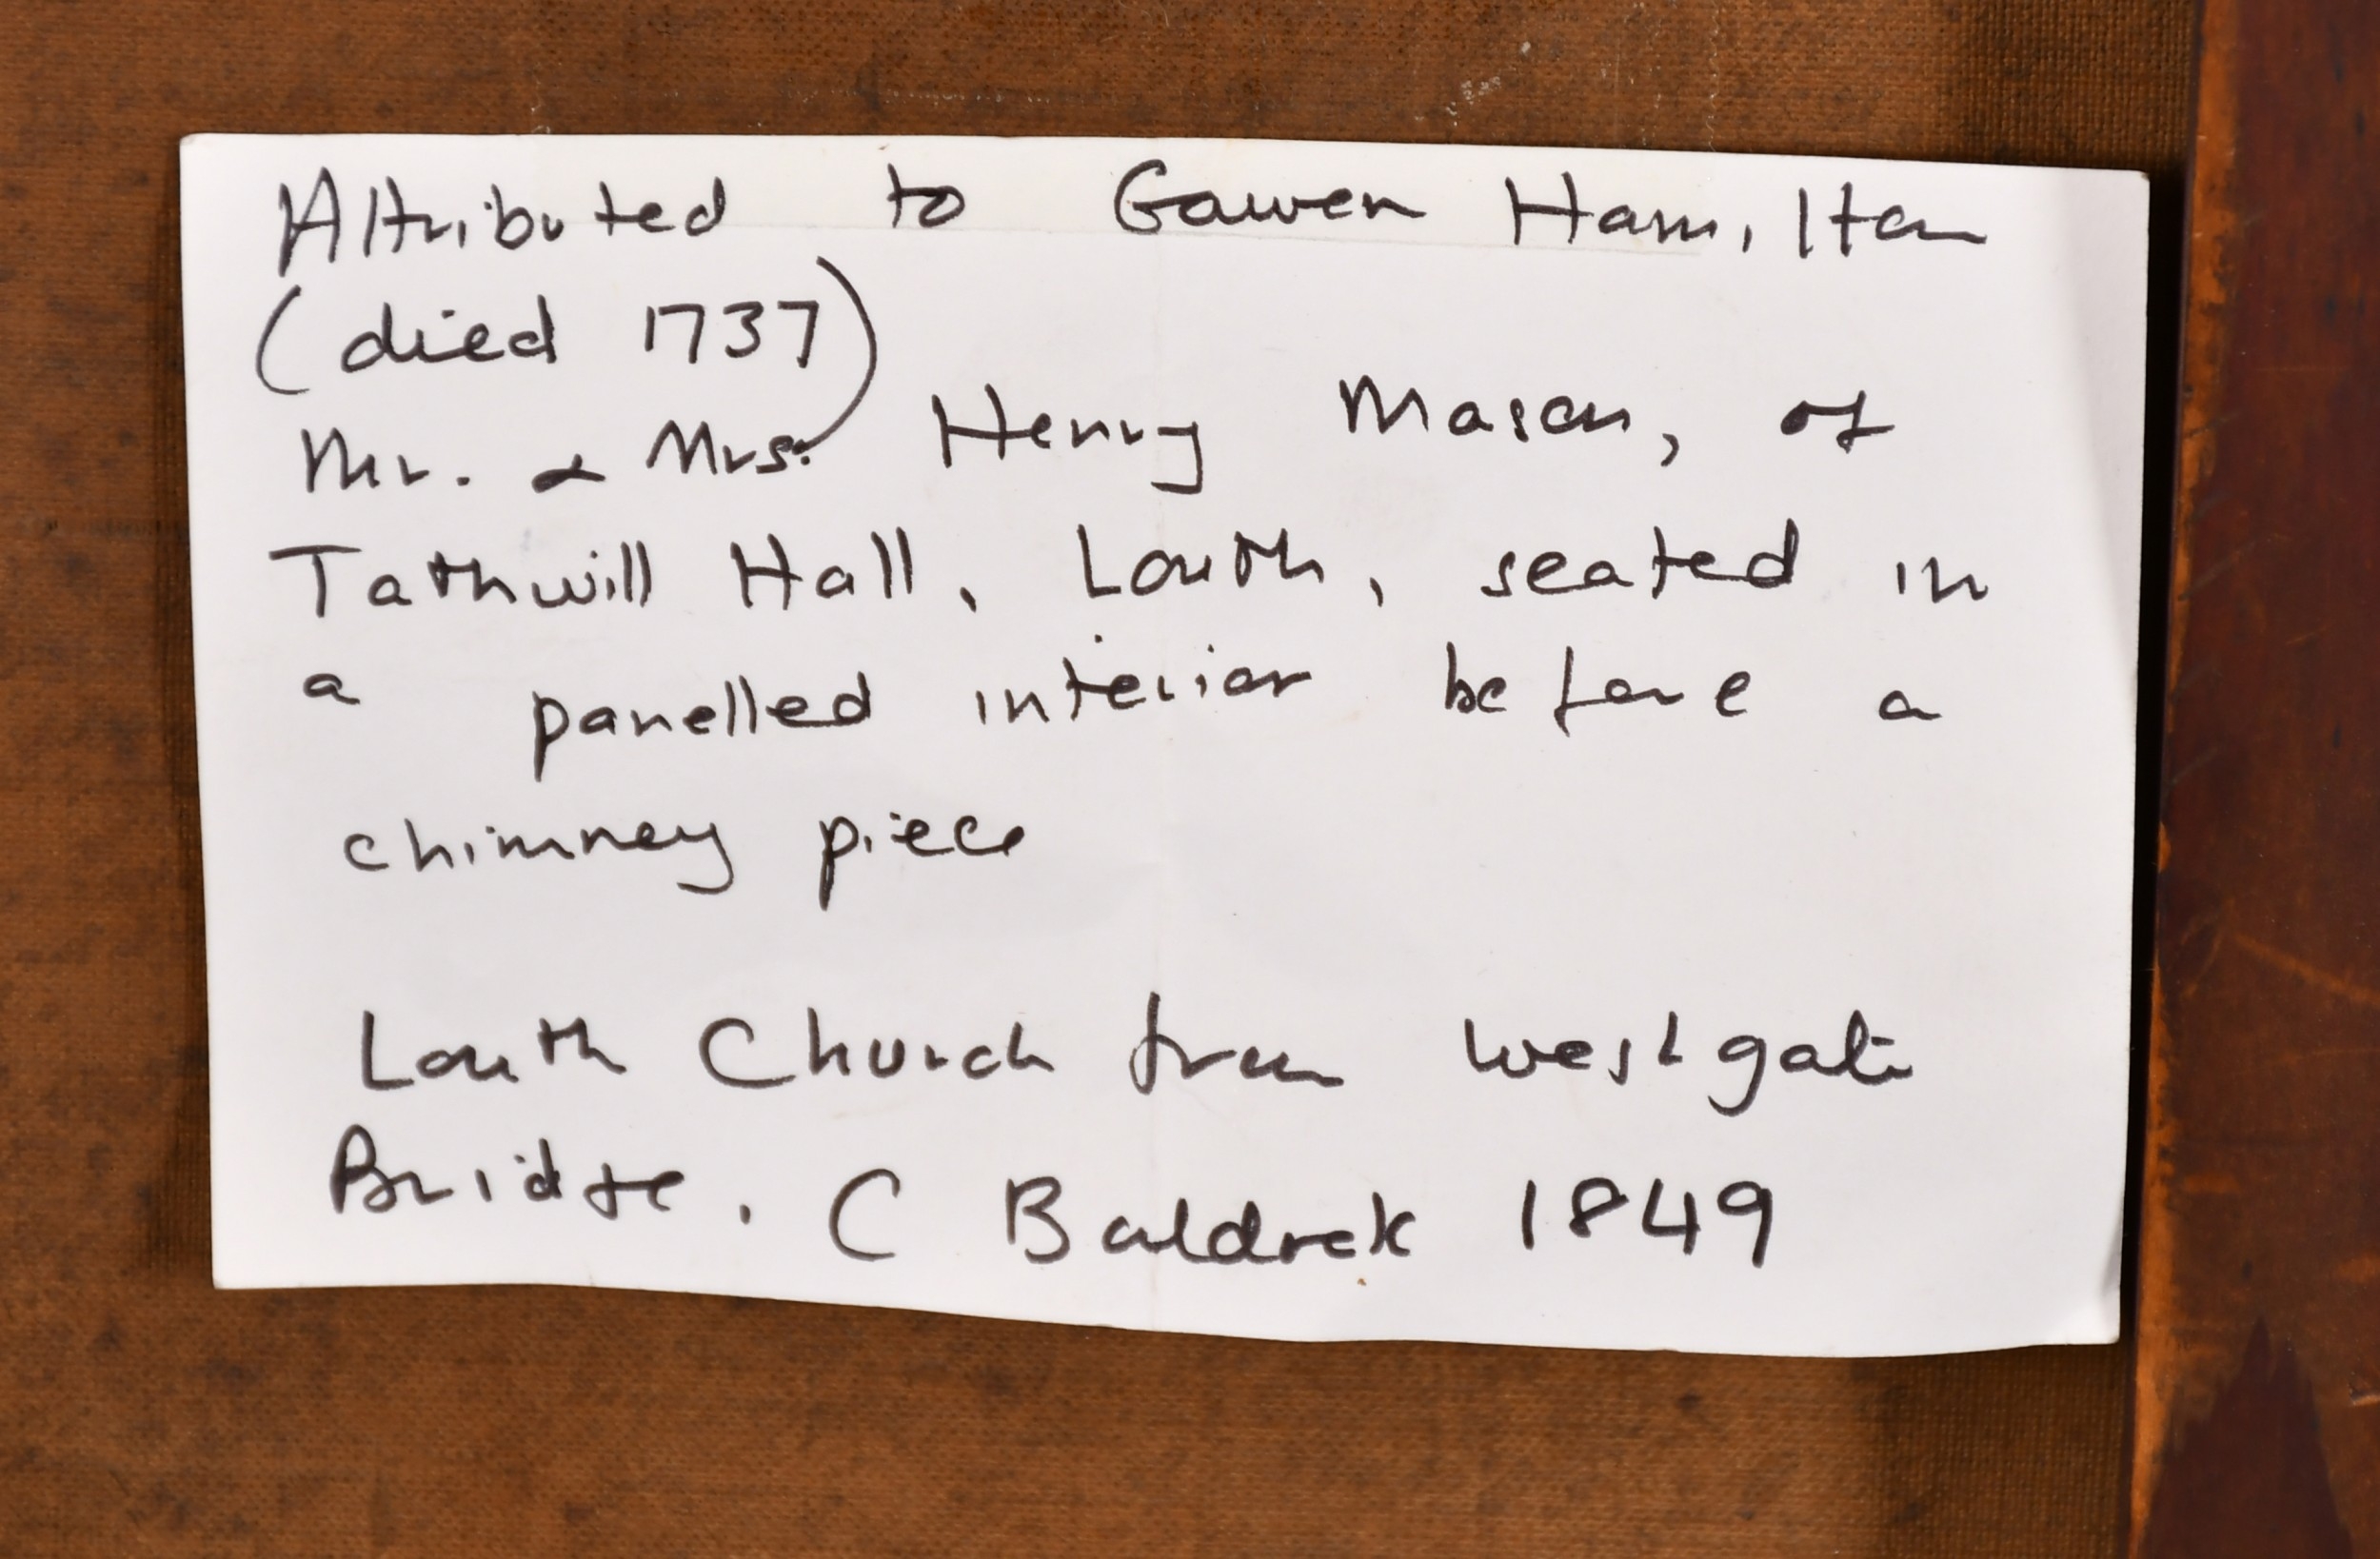 Attributed to Gawen Hamilton
(died 1737)
Mr. & Mrs. Henry Mason, of
Tathwill Hall, Louth, seated in
a panelled interior before a
chimney piece
Louth Church from Westgate
Bridge. C Baldrek 1849